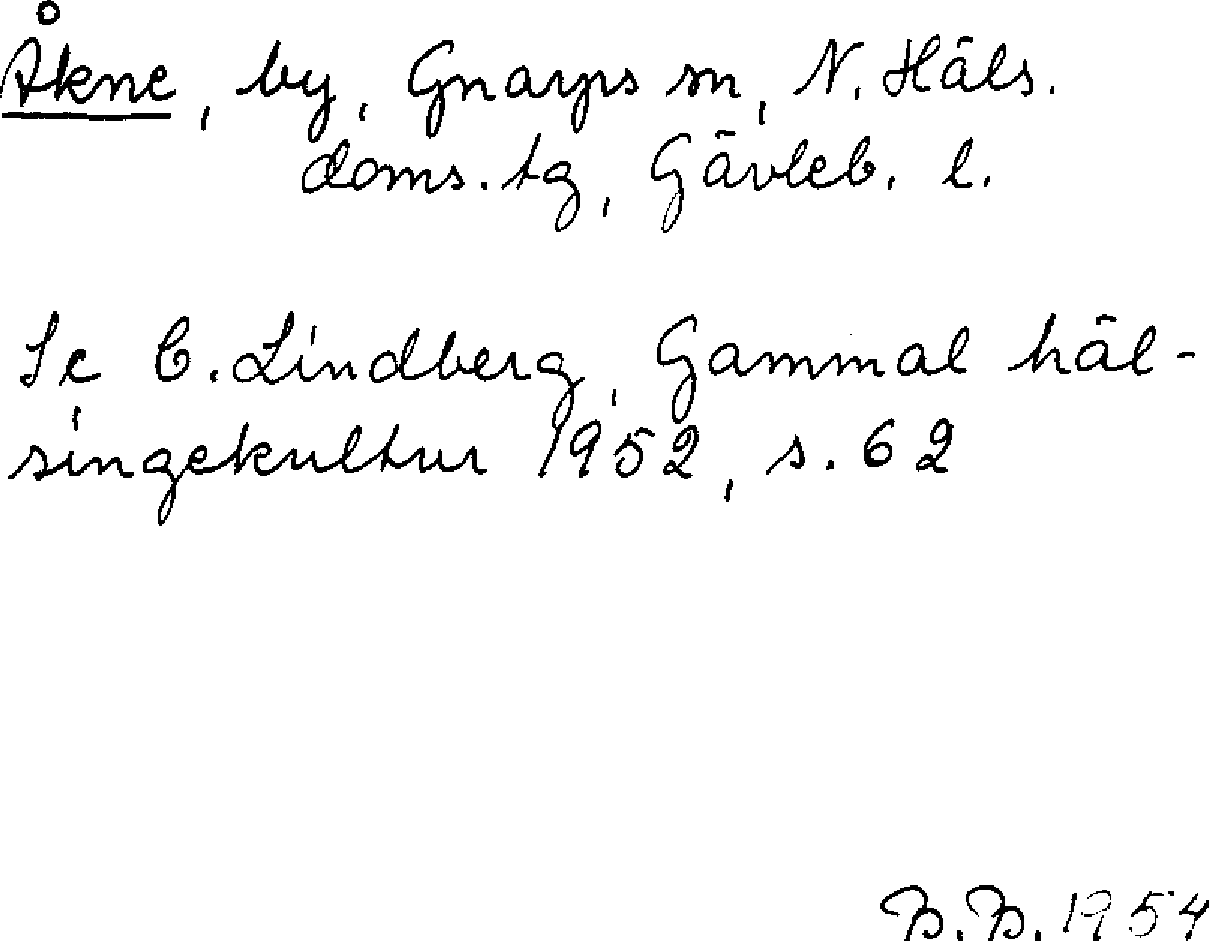 Åkne, by, Gnarps sn, N. Häls.
doms. tg, Gävleb. l.
Se C. Lindberg, Gammal häl-
singekultur 1952, s. 62
B.B. 1954